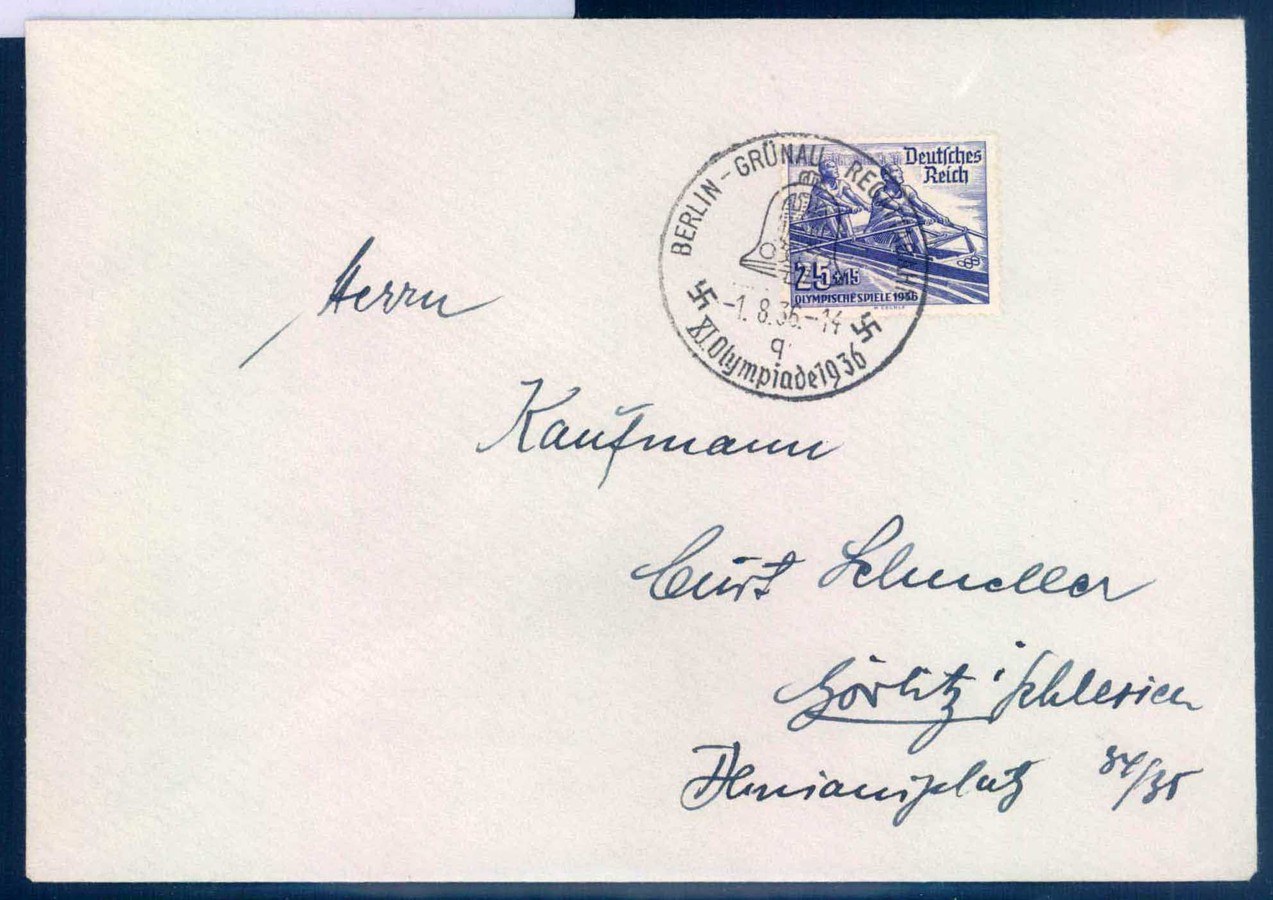 BERLIN - GRÜNAU REGATTABAHN
-1. 8.36.-14
q
XI.Olympiade1936
Deutsches
Reich
25+15
OLYMPISCHE SPIELE 1936
Herrn
Kaufmann
Curt Schueller
Görlitz i/Schlesien
34/35